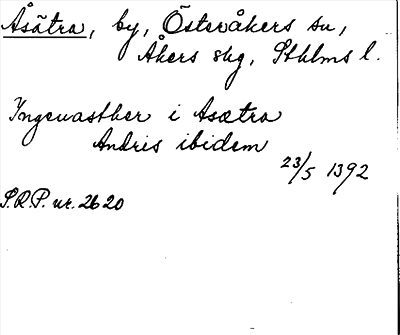 Åsätra, by, Österåkers sn,
Åkers skg, Sthlms l.
Ingeuasther i Asætra
Andris ibidem
23/5 1392
S.R.P. nr. 2620